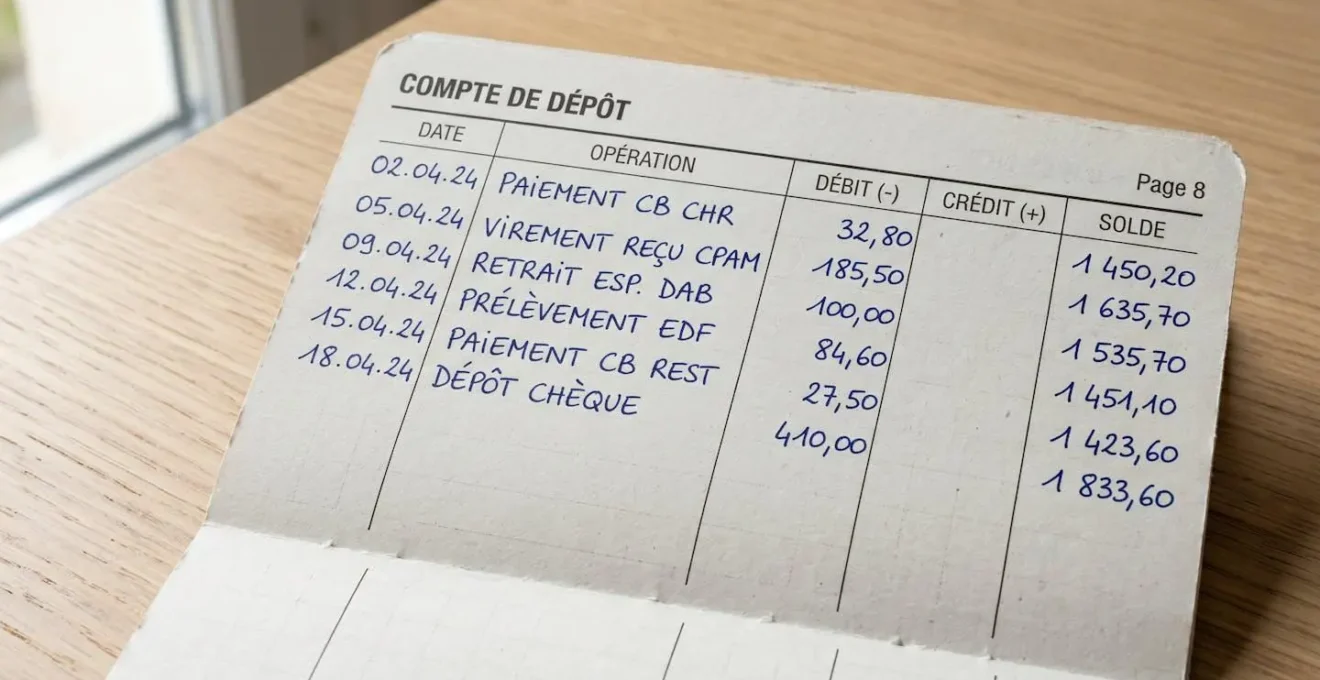 COMPTE DE DÉPÔT
Page 8
DATE OPÉRATION DÉBIT (-) CRÉDIT (+) SOLDE
02.04.24 PAIEMENT CB CHR 32,80 1 450,20
05.04.24 VIREMENT REÇU CPAM 185,50 1 635,70
09.04.24 RETRAIT ESP. DAB 100,00 1 535,70
12.04.24 PRÉLÈVEMENT EDF 84,60 1 451,10
15.04.24 PAIEMENT CB REST 27,50 1 423,60
18.04.24 DÉPÔT CHÈQUE 410,00 1 833,60